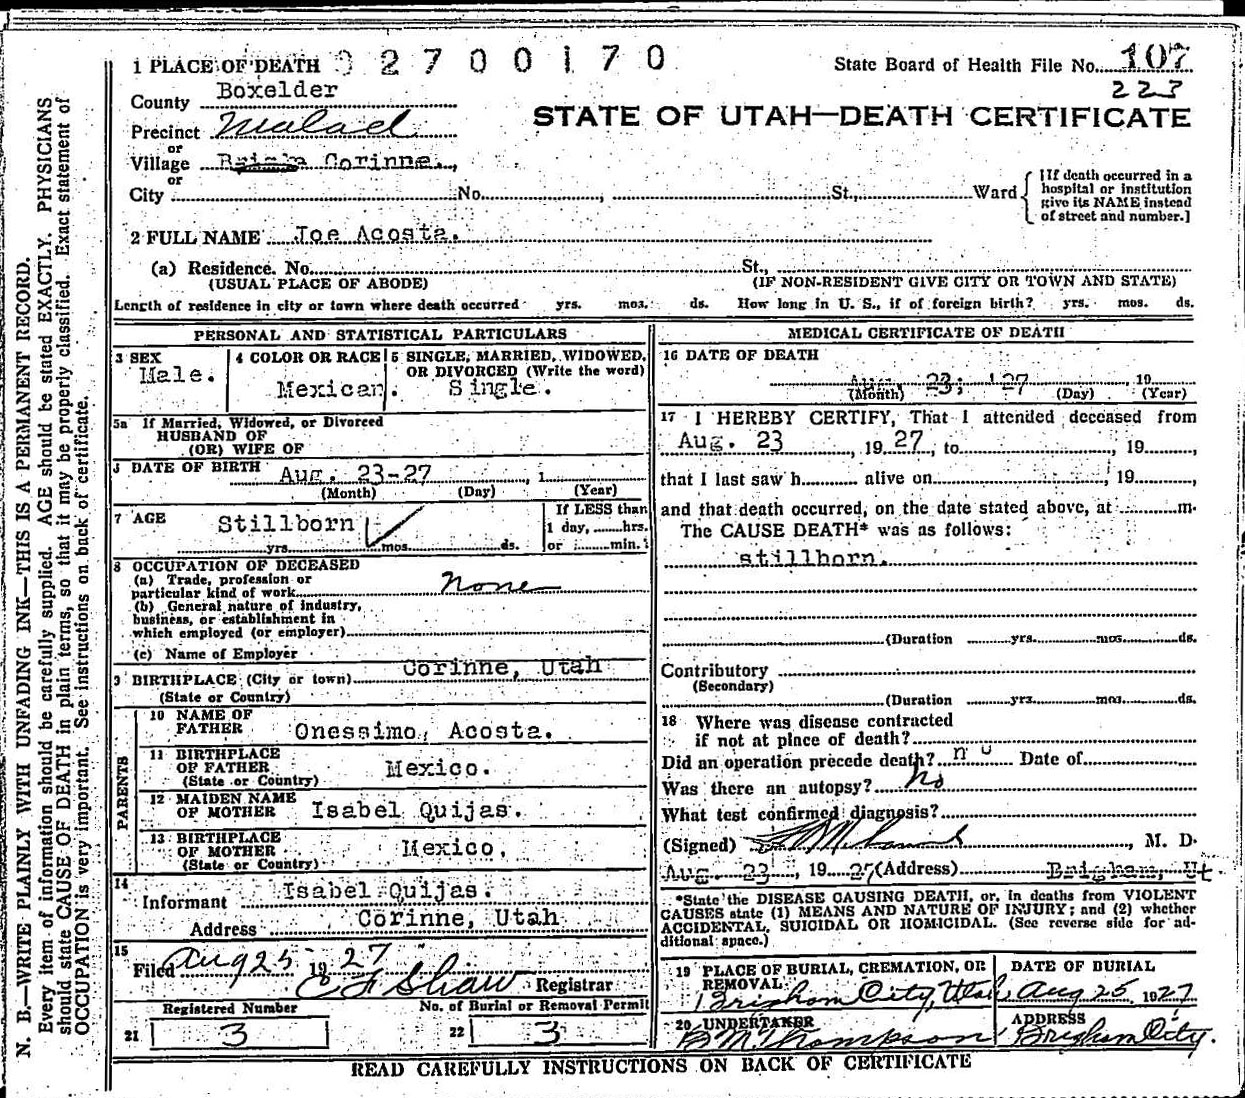 1 PLACE OF DEATH 02700170 State Board of Health File No. 107
County Boxelder 223
STATE OF UTAH—DEATH CERTIFICATE
Precinct Malad
or
Village Corinne.,
or
City No. , St., Ward
[If death occurred in a hospital or institution give its NAME instead of street and number.]
2 FULL NAME Joe Acosta.
(a) Residence. No. St.,
(USUAL PLACE OF ABODE) (IF NON-RESIDENT GIVE CITY OR TOWN AND STATE)
Length of residence in city or town where death occurred yrs. mos. ds. How long in U. S., if of foreign birth? yrs. mos. ds.
PERSONAL AND STATISTICAL PARTICULARS
3 SEX 4 COLOR OR RACE 5 SINGLE, MARRIED, WIDOWED, OR DIVORCED (Write the word)
Male. Mexican. Single.
5a If Married, Widowed, or Divorced
HUSBAND OF
(OR) WIFE OF
6 DATE OF BIRTH Aug. 23-27 , 1
(Month) (Day) (Year)
7 AGE Stillborn
yrs. mos. ds.
If LESS than
1 day, hrs.
or min.
8 OCCUPATION OF DECEASED
(a) Trade, profession or
particular kind of work none
(b) General nature of industry,
business, or establishment in
which employed (or employer)
(c) Name of Employer
9 BIRTHPLACE (City or town) Corinne, Utah
(State or Country)
PARENTS
10 NAME OF
FATHER Onessimo, Acosta.
11 BIRTHPLACE
OF FATHER Mexico.
(State or Country)
12 MAIDEN NAME
OF MOTHER Isabel Quijas.
13 BIRTHPLACE
OF MOTHER Mexico.
(State or Country)
14
Informant Isabel Quijas.
Address Corinne, Utah
15
Filed Aug 25 1927
E F Shaw Registrar
Registered Number No. of Burial or Removal Permit
21 3 22 3
MEDICAL CERTIFICATE OF DEATH
16 DATE OF DEATH
Aug. 23; '27 , 19
(Month) (Day) (Year)
17 I HEREBY CERTIFY, That I attended deceased from
Aug. 23 , 1927, to , 19 ,
that I last saw h alive on , 19 ,
and that death occurred, on the date stated above, at m.
The CAUSE DEATH* was as follows:
stillborn.
(Duration yrs. mos. ds.
Contributory
(Secondary)
(Duration yrs. mos. ds.
18 Where was disease contracted
if not at place of death?
Did an operation precede death? no Date of
Was there an autopsy? no
What test confirmed diagnosis?
(Signed) , M. D.
Aug. 23 , 1927 (Address) Brigham, Ut.
*State the DISEASE CAUSING DEATH, or, in deaths from VIOLENT
CAUSES state (1) MEANS AND NATURE OF INJURY; and (2) whether
ACCIDENTAL, SUICIDAL OR HOMICIDAL. (See reverse side for ad-
ditional space.)
19 PLACE OF BURIAL, CREMATION, OR
REMOVAL
Brigham City, Utah
DATE OF BURIAL
Aug 25 1927
20 UNDERTAKER
B M Thompson
ADDRESS
Brigham City.
READ CAREFULLY INSTRUCTIONS ON BACK OF CERTIFICATE
N. B.—WRITE PLAINLY WITH UNFADING INK—THIS IS A PERMANENT RECORD.
Every item of information should be carefully supplied. AGE should be stated EXACTLY. PHYSICIANS
should state CAUSE OF DEATH in plain terms, so that it may be properly classified. Exact statement of
OCCUPATION is very important. See instructions on back of certificate.